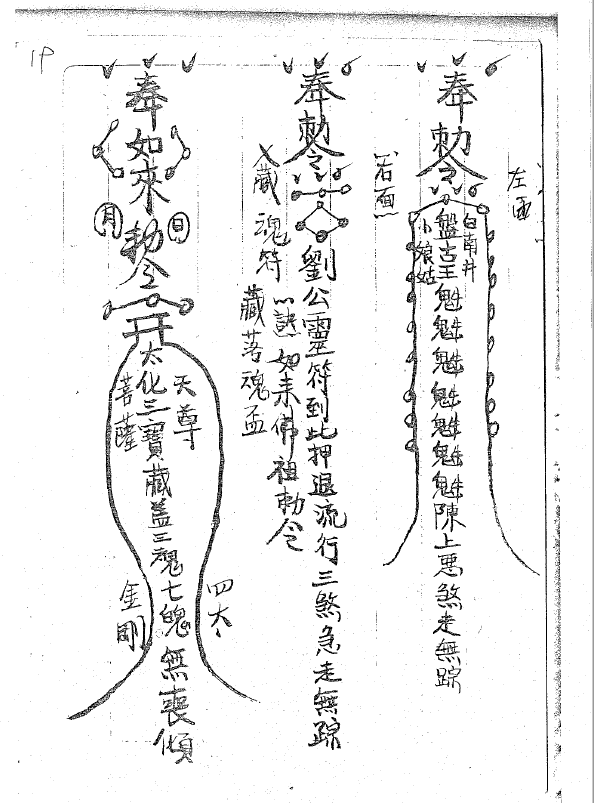 19
左面
奉勅令
白南井
盤古王
小娘姑
魁魁魁魁魁魁魁陳上悪煞走無踪
右面
奉勅令
劉公靈符到此押退流行三煞急走無踪
如来佛祖勅令
藏魂符
藏落魂盃
奉如來勅令
日
月
井
天尊
太化三寶藏盖三魂七魄無喪傾
菩薩
四大
金剛